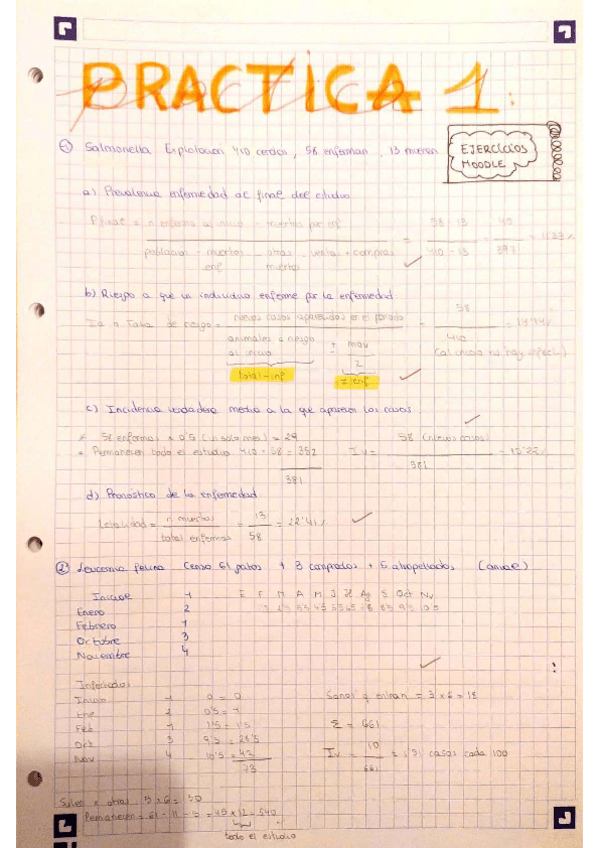 PRACTICA 1:
EJERCICIOS MOODLE
1 Salmonella Explotacion 410 cerdos, 58 enferman, 13 mueren
a) Prevalencia enfermedad al final del estudio
P. final = n. enfermos al inicio - muertos por inf / población - muertos enf - otras muertes - ventas + compras = 58 - 13 / 410 - 13 = 45 / 397 = 11'33 %
b) Riesgo a que un individuo enferme por la enfermedad
Ia o Tasa de riesgo = nuevos casos aparecidos en el periodo / animales a riesgo al inicio + mov / 2 = 58 / 410 = 14'14%
(al inicio no hay infecc.)
total - inf
Σ enf
c) Incidencia verdadera media a la que aparecen los casos.
* 58 enfermos x 0'5 (un solo mes) = 29
* Permanecen todo el estudio 410 - 58 = 352
381
Iv = 58 (nuevos casos) / 381 = 15'22%
d) Pronóstico de la enfermedad
Letalidad = n. muertos / total enfermos = 13 / 58 = 22'41%
2 Leucemia felina Censo 61 gatos + 3 comprados + 5 atropellados (anual)
Iniciase 1
Enero 2
Febrero 1
Octubre 3
Noviembre 4
E F M A M J Jl Ag S Oct Nv
Infectados
Inicio 1 0 = 0
Ene 2 0'5 = 1
Feb 1 1'5 = 1'5
Oct 3 9'5 = 28'5
Nov 4 10'5 = 42
73
Sanos q entran = 3 x 6 = 18
Σ = 661
Iv = 10 / 661 = 1'51 casos cada 100
Salen x otras 5 x 6 = 30
Permanecen = 61 - 11 - 5 = 45 x 12 = 540
todo el estudio